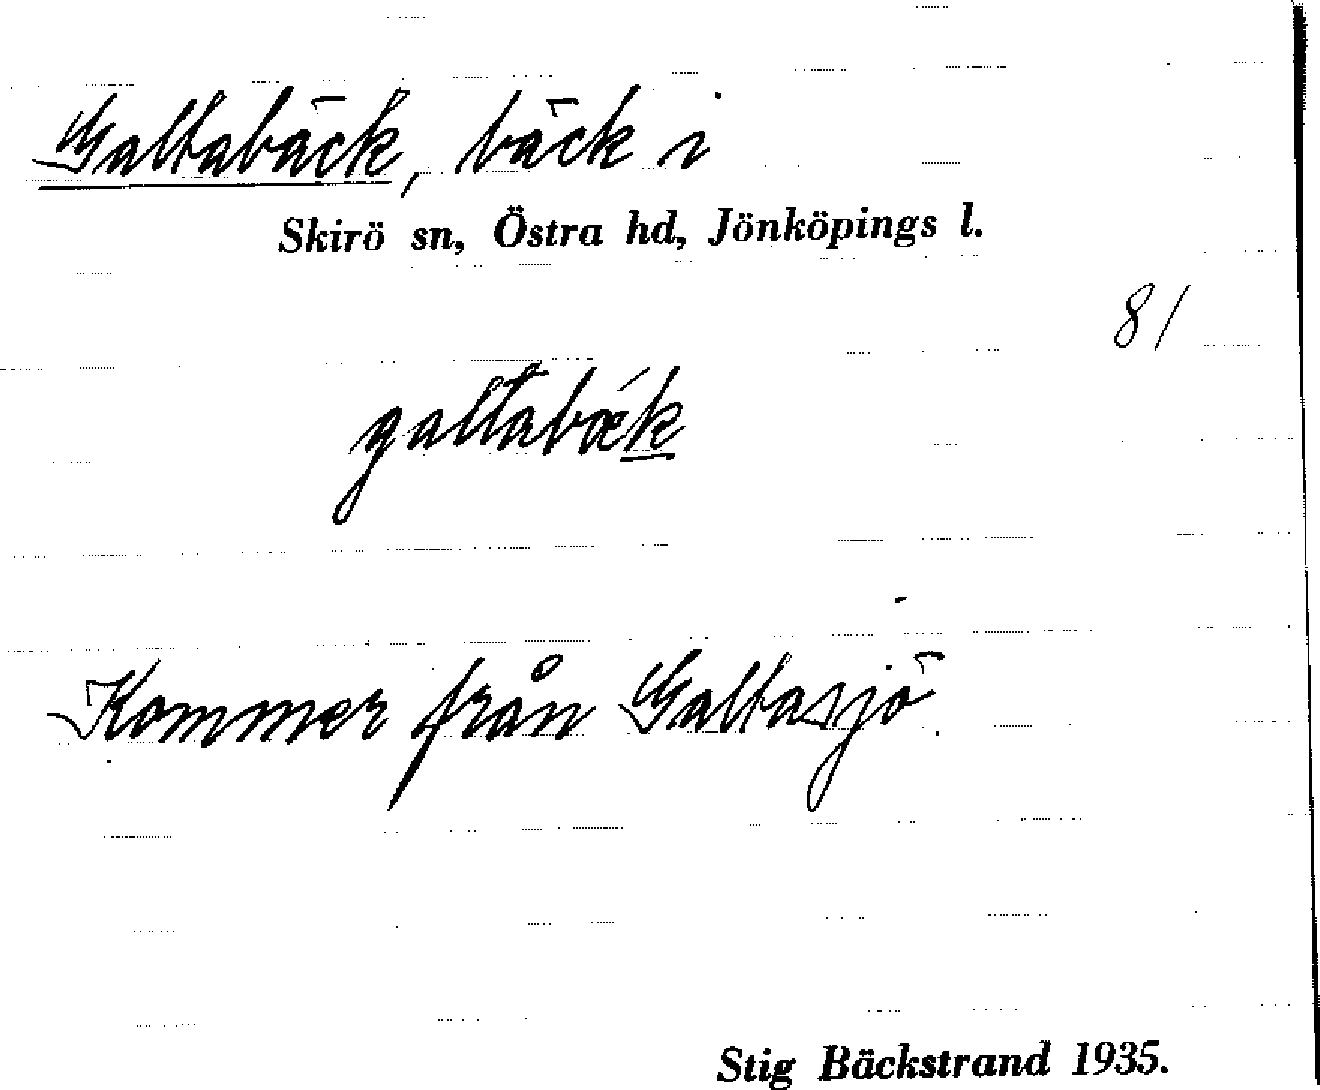 Galtabäck, bäck i
Skirö sn, Östra hd, Jönköpings l.
81
galtabæk
Kommer från Galtasjö.
Stig Bäckstrand 1935.